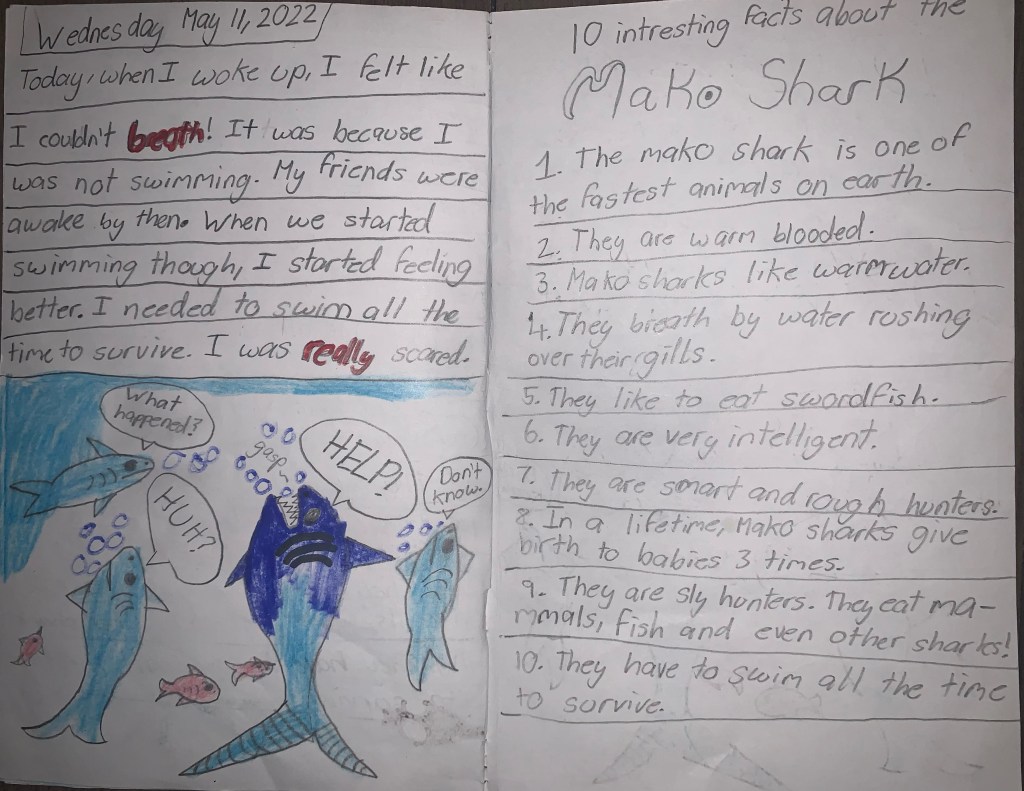 Wednesday May 11, 2022
Today, when I woke up, I felt like
I couldn't breath! It was because I
was not swimming. My friends were
awake by then. When we started
swimming though, I started feeling
better. I needed to swim all the
time to survive. I was really scared.
What
happened?
HUH?
gasp~
HELP!
Don't
know.
10 intresting facts about the
Mako Shark
1. The mako shark is one of
the fastest animals on earth.
2. They are warm blooded.
3. Mako sharks like warm water.
4. They breath by water rushing
over their gills.
5. They like to eat swordfish.
6. They are very intelligent.
7. They are smart and rough hunters.
8. In a lifetime, Mako sharks give
birth to babies 3 times.
9. They are sly hunters. They eat ma-
mmals, fish and even other sharks!
10. They have to swim all the time
to survive.